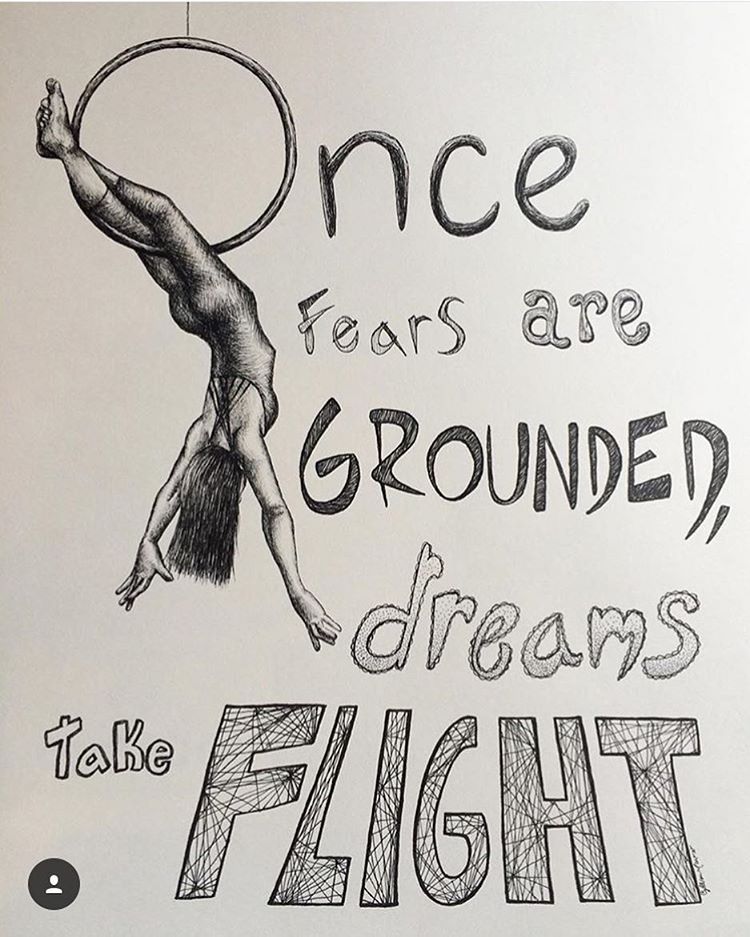 Once
Fears are
GROUNDED,
dreams
take FLIGHT